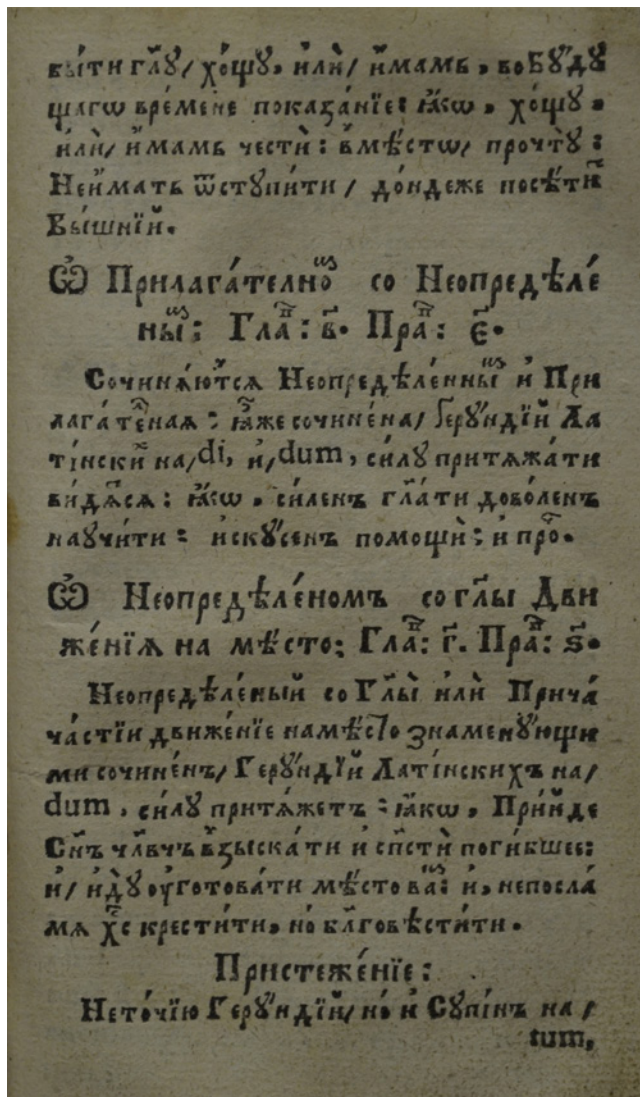 быти гл҃ѹ/ хо́щꙋ, илѝ/ и҆́мамъ, во бꙋ́дꙋ
щагѡ вре́мене показа́нїе: ꙗ҆́кѡ, хо́щꙋ,
илѝ/ и҆́мамъ честѝ: вмѣ́стѡ/ прочтꙋ̀:
Неи҆́мать ѿстꙋпи́ти / до́ндеже посѣти́тъ
Вы́шнїй.
Ѽ Прилага́телноⷨ со Неопредѣле́
ныⷨ; Глаⷡ: в҃. Праⷡ: є҃.
Сочинѧ́ютсѧ Неопредѣле́нныⷨ и҆ При
лага́теⷧнаѧ: ꙗ҆́же сочине́на/ Герꙋ́ндїй Ла
ті́нскиⷯ на/di, и҆/dum, си́лꙋ притѧжа́ти
ви́дѧⷮсѧ: ꙗ҆́кѡ, си́ленъ гл҃а́ти дово́ленъ
наꙋчи́ти: искꙋ́сенъ помощѝ: и҆ проⷱ.
Ѽ Неопредѣле́номъ со гл҃ы Дви
же́нїѧ на мѣ́сто; Глаⷡ: г҃. Праⷡ: ѕ҃.
Неопредѣле́ный со Гл҃ы̀ илѝ Прича́
ча́стїи движе́нїе на мѣ́сто знаменꙋ́ющи
ми сочине́нъ/ Герꙋ́ндїй Латі́нскихъ на/
dum, си́лꙋ притѧ́жетъ: ꙗ҆́кѡ, Прїи́де
Сн҃ъ чл҃вчъ взыска́ти и҆ сп҃стѝ поги́бшее:
и҆/ и҆дꙋ̀ ᲂу҆гото́вати мѣ́сто ваⷨ: и҆, непосла́
мѧ хс҃ крести́ти, но бл҃говѣсти́ти.
Пристеже́нїе:
Нето́чїю Герꙋ́ндїй/ но и҆ Сꙋпі́нъ на/
tum,